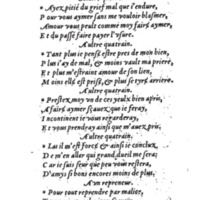 * Ayez pitié du grief mal que i'endure,
Pour vous aymer sans me vouloir blasmer,
Amour vous peult comme moy faire aymer,
Et du passé faire payer l'vsure.
Aultre quatrain.
* Tant plus ie pense estre pres de mon bien,
Plus i'ay de mal, & moins vault ma priere,
Et plus m'estraint amour de son lien,
Moins elle est prise, & plus est fiere.
Aultre quatrain.
* Prestez moy vn de ces yeulx bien apris,
A faire aymer sçauez, que ie feray,
Incontinent ie vous regarderay,
Et vous prendray ainsi que m'auez pris.
Aultre quatrain.
* Las il m'est force & ainsi ie concluz
De m'en aller qui grand dueil me sera;
Car ie suis seur que peu vous restera,
D'amys si bons encores moins de plus.
A vn repreneur.
* Pour tout reprendre par malice,